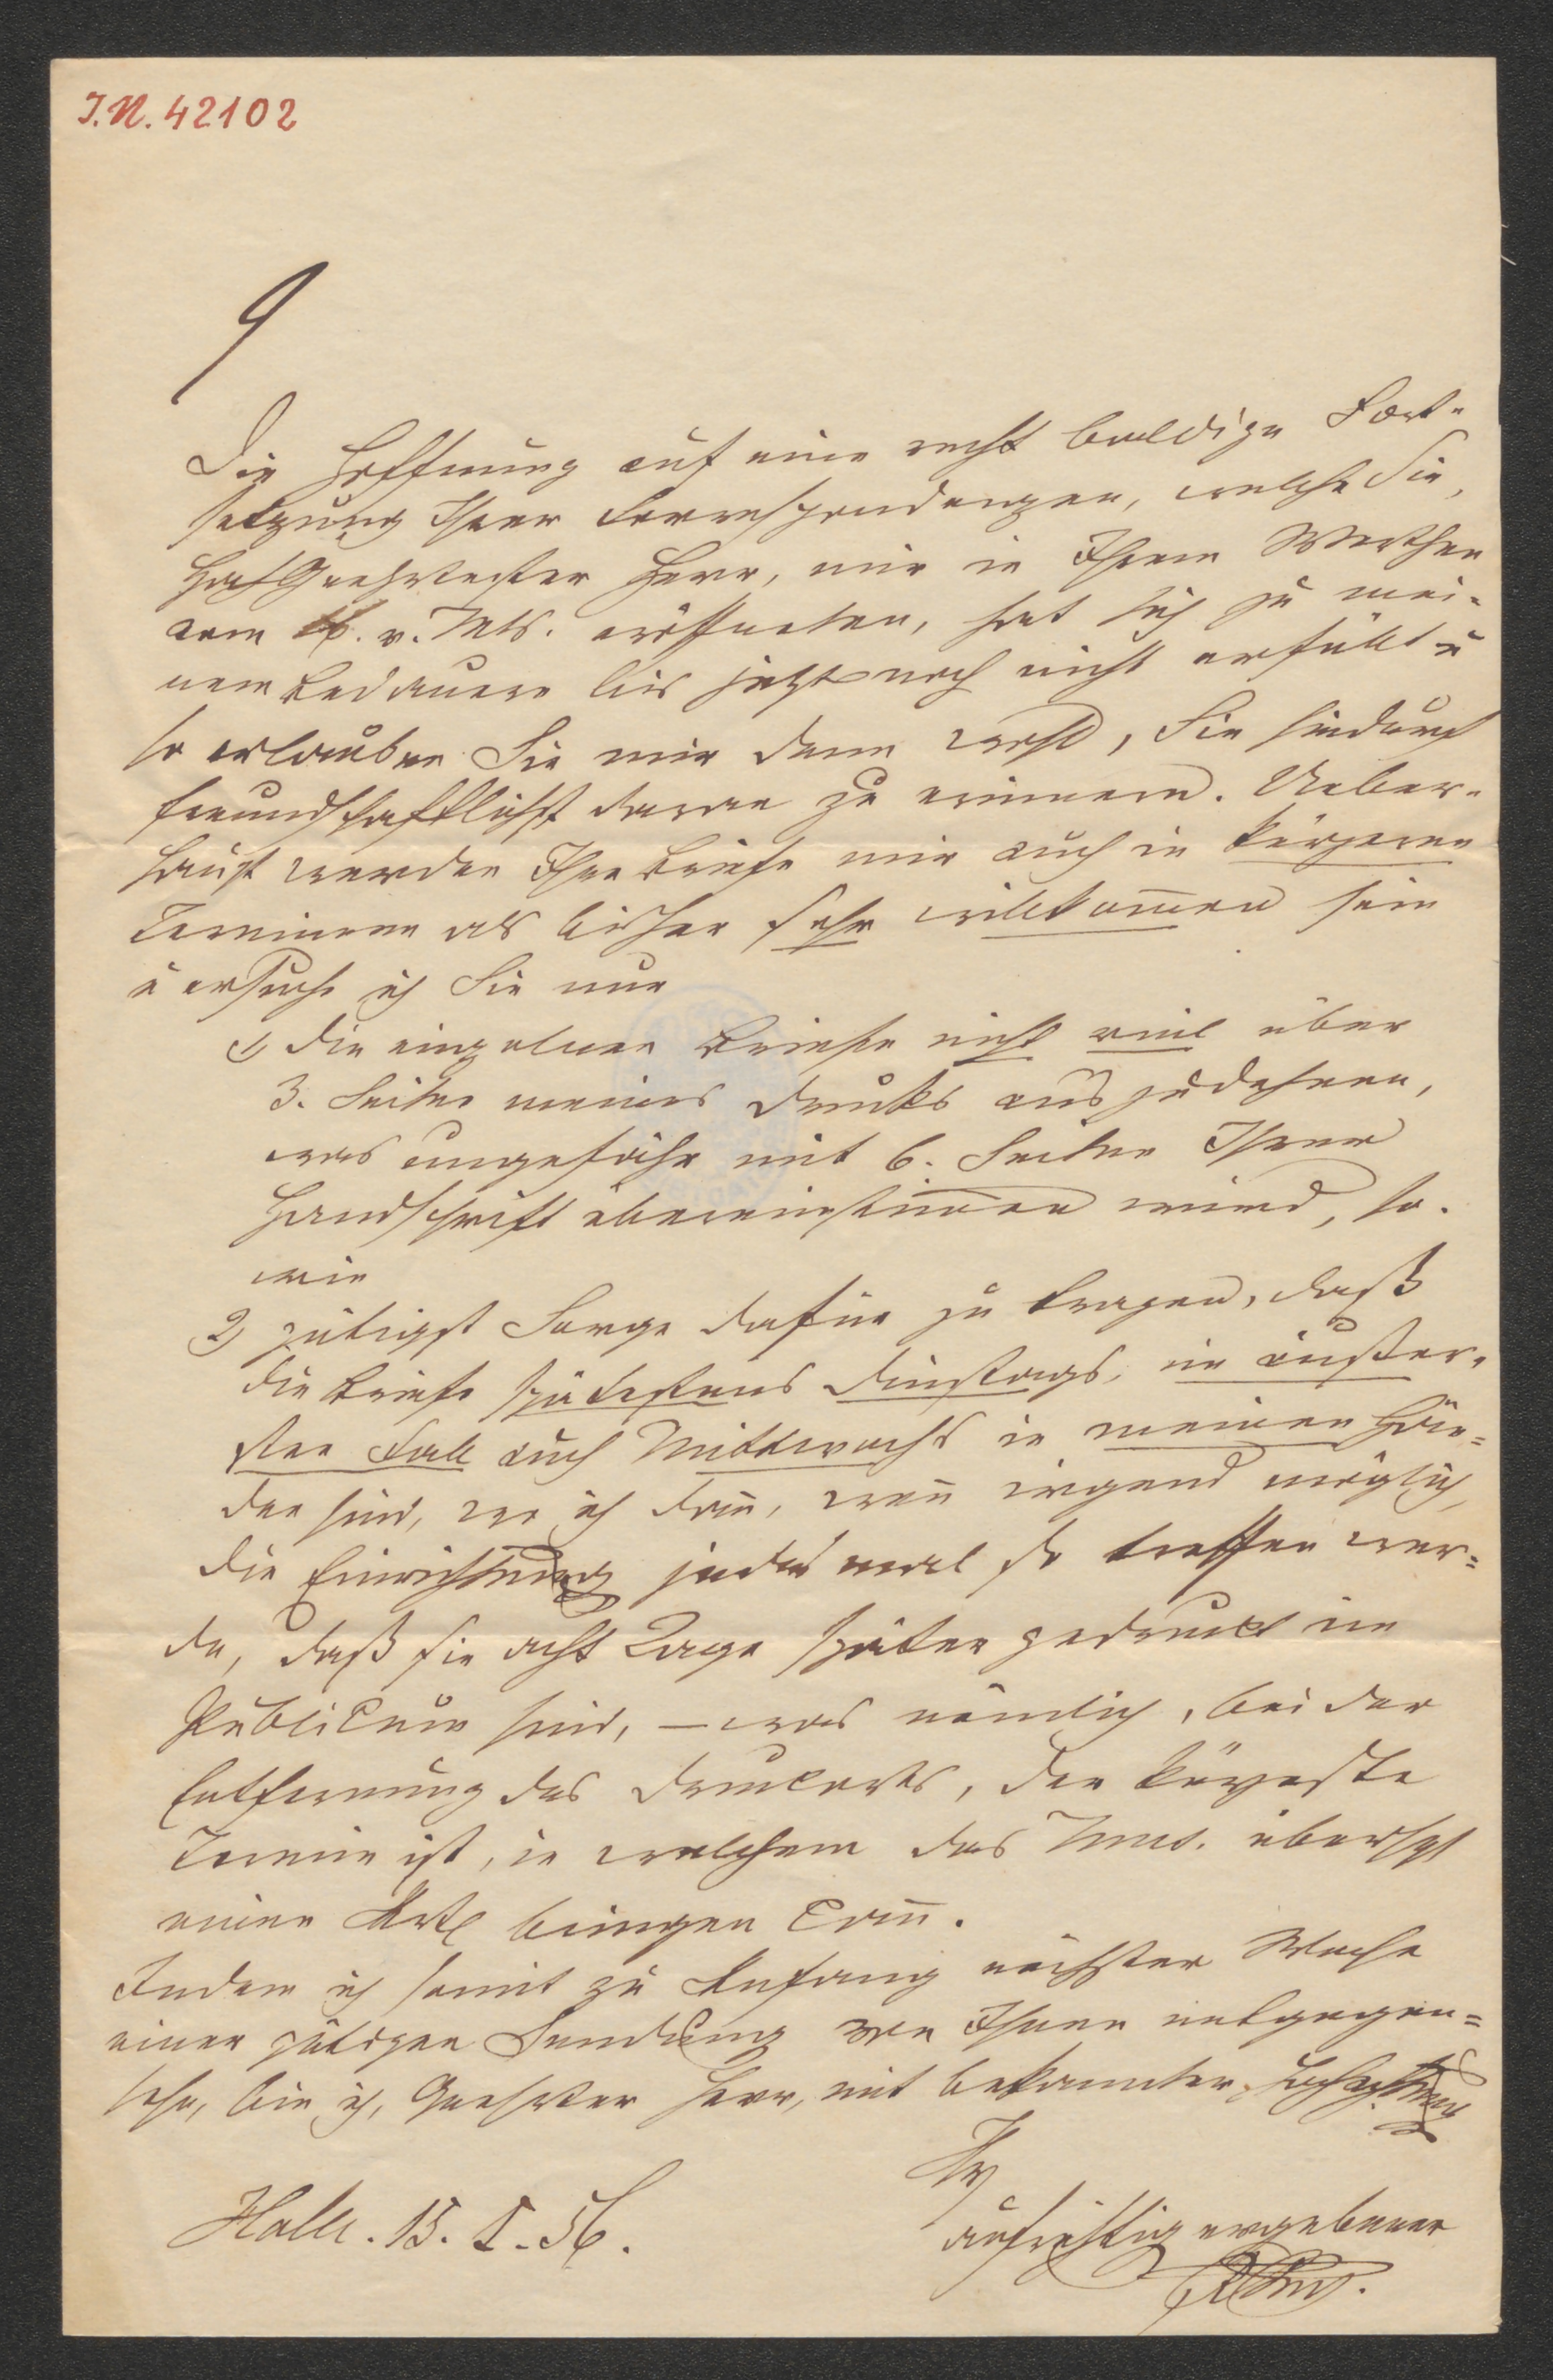 I.N. 42102
Die Hoffnung auf eine recht baldige Fort-
setzung Ihrer Correspondenzen, welche Sie,
HochGeehrtester Herr, mir in Ihrem Werthen
vom 16. v. Mts. eröffneten, hat sich zu mei-
nem Bedauern bis jetzt noch nicht erfüllt u
so erlauben Sie mir denn wohl, Sie hiedurch
freundschaftlichst daran zu erinnern. Ueber-
haupt werden Ihre Briefe mir auch in kürzeren
Terminen als bisher sehr willkom̅en sein
u ersuche ich Sie nur
1) die einzelnen Briefe nicht viel über
3. Seiten meines Drucks auszudehnen,
was ungefähr mit 6. Seiten Ihrer
Handschrift übereinstim̅en wird, so-
wie
2) gütigst Sorge dafür zu tragen, daß
die Briefe spätestens Dinstags, im äußer-
sten Fall auch Mittwochs in meinen Hän-
den sind, wo ich dan̅, wen̅ irgend möglich,
die Einrichtung jedes mal so treffen wer-
de, daß sie acht Tage später gedruckt im
Publicum sind, – was nämlich, bei der
Entfernung des Druckorts, der kürzeste
Termin ist, in welchem das Inst. überhpt
einen Artl bringen can̅.
Indem ich somit zu Anfang nächster Woche
einer gütigen Sendung von Ihnen entgegen-
sehe, bin ich, Geehrter Herr, mit bekannter Hochachtung
Ihr
Halle. 15. 1. 56.
aufrichtig ergebener